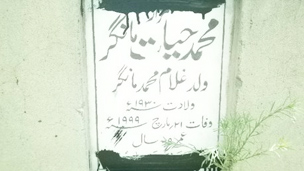 محمد حیات مانگر
ولد غلام محمد مانگر
ولادت ۱۹۳۰ء
وفات ۲۱ مارچ ۱۹۹۹ء
عمر سال